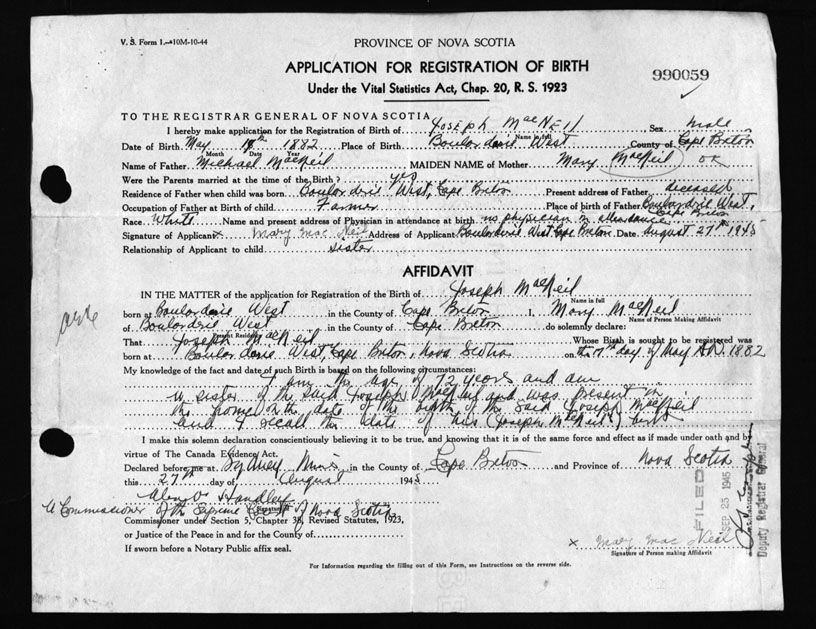 V. S. Form 1.—10M-10-44
PROVINCE OF NOVA SCOTIA
APPLICATION FOR REGISTRATION OF BIRTH
Under the Vital Statistics Act, Chap. 20, R. S. 1923
990059
TO THE REGISTRAR GENERAL OF NOVA SCOTIA
I hereby make application for the Registration of Birth of Joseph MacNeil Sex male
Name in full
Date of Birth May 1882 Place of Birth Boulardrie West County of Cape Breton
Month Date Year
Name of Father Michael MacNeil MAIDEN NAME of Mother Mary MacNeil OK
Were the Parents married at the time of the Birth? yes
Residence of Father when child was born Boulordrie West, Cape Breton Present address of Father deceased
Occupation of Father at Birth of child Farmer Place of birth of Father Boulordrie West, Cape Breton
Race White Name and present address of Physician in attendance at birth no physician in attendance
Signature of Applicant x Mary Mac Neil Address of Applicant Boulordrie West Cape Breton Date August 27th 1945
Relationship of Applicant to child sister
AFFIDAVIT
IN THE MATTER of the application for Registration of the Birth of Joseph MacNeil
Name in full
born at Boulordrie West in the County of Cape Breton I, Mary MacNeil
Name of Person Making Affidavit
of Boulordrie West in the County of Cape Breton do solemnly declare:
That Joseph MacNeil Whose Birth is sought to be registered was
born at Boulordrie West, Cape Breton, Nova Scotia on the day of May A.D. 1882
My knowledge of the fact and date of such Birth is based on the following circumstances:
I am the age of 72 years and am
a sister of the said Joseph MacNeil and was present in
the home on the date of the birth of the said Joseph MacNeil
and I recall the date of his (Joseph MacNeil's) birth
I make this solemn declaration conscientiously believing it to be true, and knowing that it is of the same force and effect as if made under oath and by
virtue of The Canada Evidence Act.
Declared before me at Sydney Mines in the County of Cape Breton and Province of Nova Scotia
this 27th day of August 1945
Handley
A Commissioner of the Supreme Court of Nova Scotia
Signature
Commissioner under Section 5, Chapter 38, Revised Statutes, 1923,
or Justice of the Peace in and for the County of
If sworn before a Notary Public affix seal.
x Mary Mac Neil
Signature of Person making Affidavit
For Information regarding the filling out of this Form, see Instructions on the reverse side.
FILED
SEP 25 1945
Deputy Registrar General